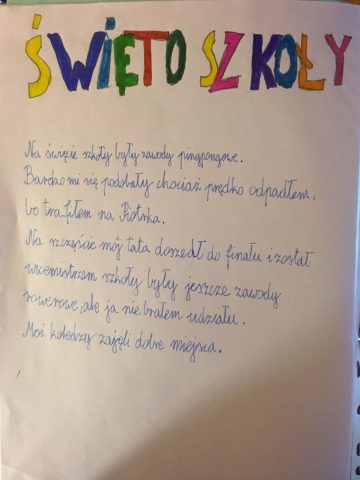 ŚWIĘTO SZKOŁY
Na święcie szkoły były zawody pingpongowe.
Bardzo mi się podobały chociaż prędko odpadłem,
bo trafiłem na Piotrka.
Na szczęście mój tata doszedł do finału i został
wicemistrzem szkoły były jeszcze zawody
rowerowe, ale ja nie brałem udziału.
Moi koledzy zajęli dobre miejsca.